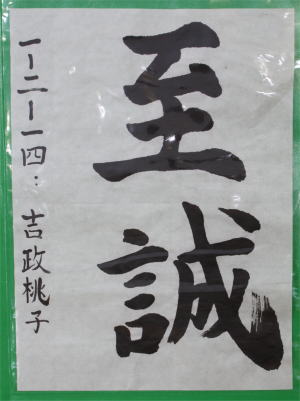 至誠
一ー二ー一四：吉政桃子